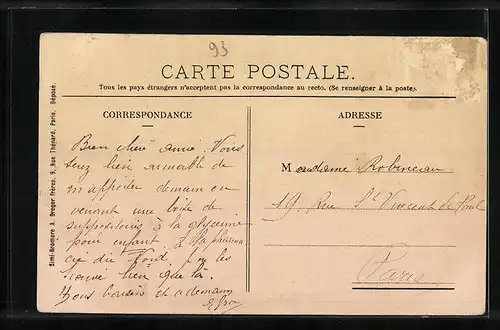 93
CARTE POSTALE.
Tous les pays étrangers n'acceptent pas la correspondance au recto. (Se renseigner à la poste)
CORRESPONDANCE
Bien chère amie. Vous
serez bien aimable de
m'apporter demain en
venant une boîte de
suppositoires à la glycerine
pour enfant à la pharma
cie du Nord
trouve bien que là.
Bons baisers et a demain
ADRESSE
Madame Robineau
19 Rue St Vincent de Paul
Paris
Simi-Bromure A. Breger frères, 9, Rue Thénard, Paris. Déposé.